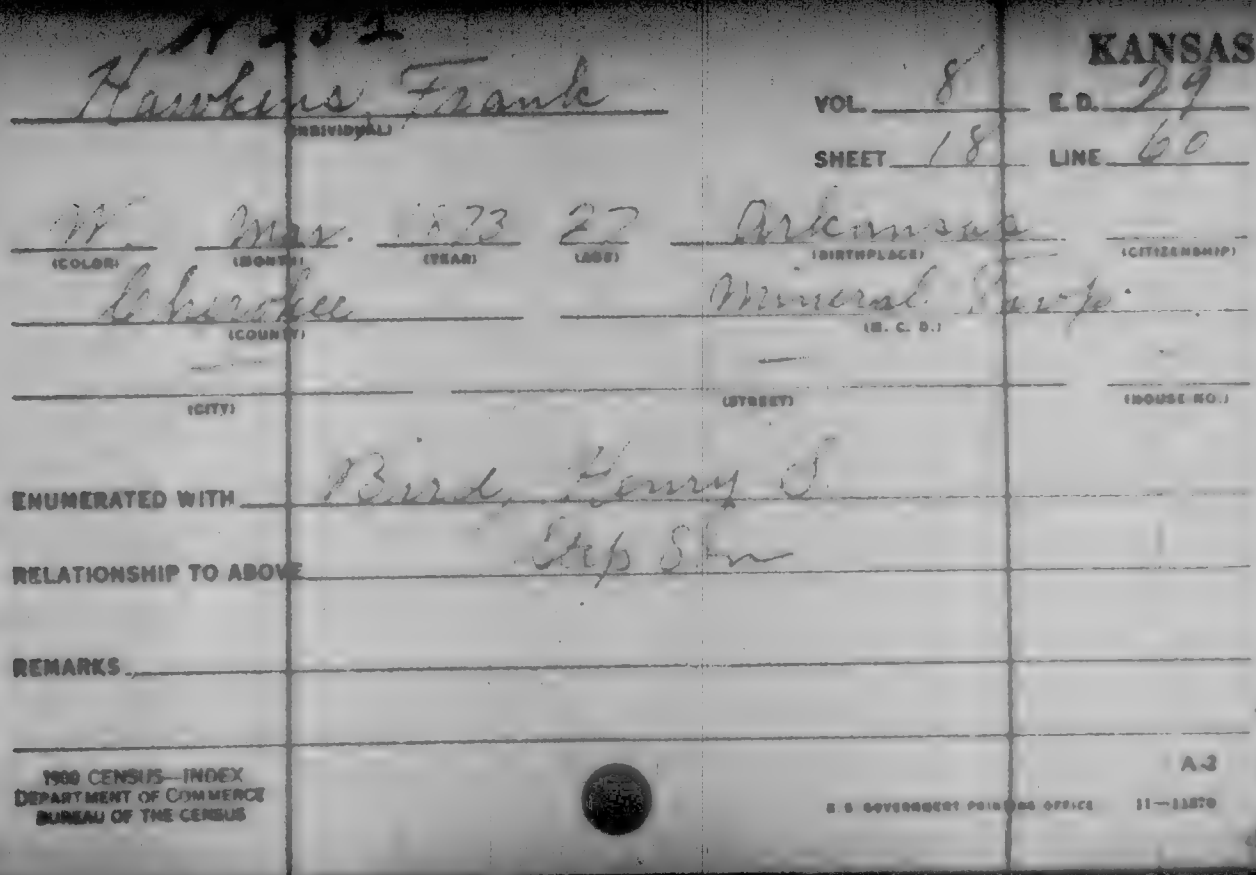 KANSAS
Hawkins, Frank
(INDIVIDUAL)
VOL. 8 E. D. 29
SHEET 18 LINE 60
W. Mar. 1873 27 Arkansas
(COLOR) (MONTH) (YEAR) (AGE) (BIRTHPLACE) (CITIZENSHIP)
Cherokee Mineral Twp.
(COUNTY) (M. C. D.)
— — -
(CITY) (STREET) (HOUSE NO.)
ENUMERATED WITH Bird, Henry S
RELATIONSHIP TO ABOVE Step Son
REMARKS
1900 CENSUS—INDEX
DEPARTMENT OF COMMERCE
BUREAU OF THE CENSUS
A-2
U.S. GOVERNMENT PRINTING OFFICE